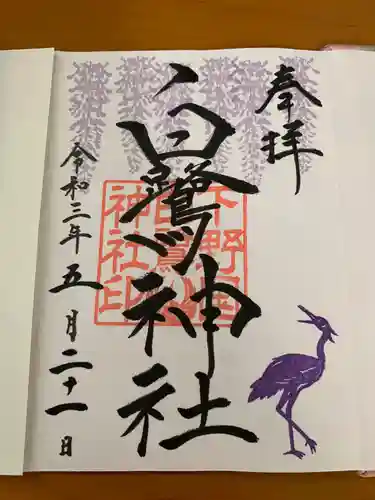 奉拝
白鷺神社
下野国
白鷺山
神社印
令和三年五月二十一日